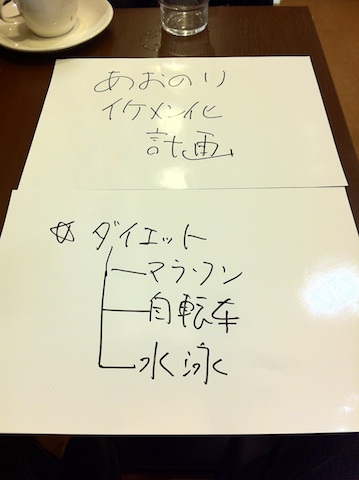 あおのり
イケメン化
計画
☆ダイエット
マラソン
自転車
水泳